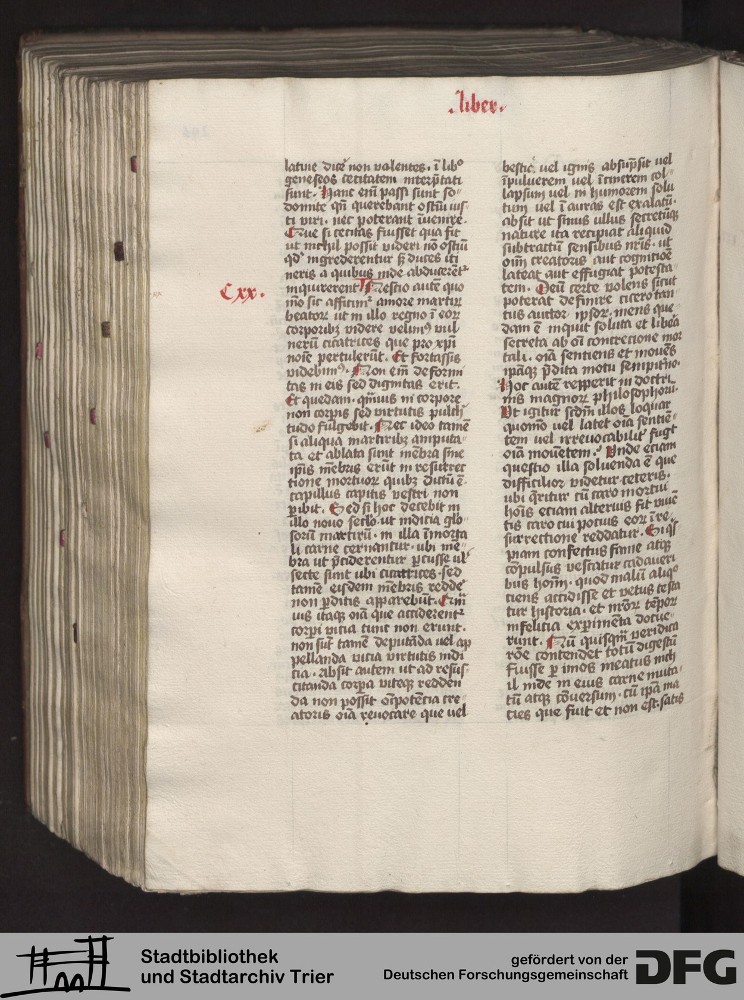 Liber.
latine dicere non valentes. ī libº
geneseos cecitatem interp̄tati
sunt. Hanc em̄ passi sunt so-
domite qn̄ querebant ostiū ius-
ti viri. nec poterant īvenire.
Que si cecitas fuisset qua fit
ut nichil possit videri nō ostiū
qd̄ ingrederentur sꝫ duces iti
neris a quibus inde abducerēt
inquirerent
Cxx.
Nescio autē quo
mō sic afficimr̄ amore martir
beator ut in illo regno ī eor
corporibꝫ videre velimꝰ vul
nerū cicatrices que pro xp̄i
noīe pertulerūt. Et fortassis
videbimꝰ. Non em̄ deformi
tas in eis sed dignitas erit.
Et quedam. qm̄uis in corpore
non corp̄is sed virtutis pulch
tudo fulgebit. Nec ideo tamē
si aliqua martiribꝫ amputa-
ta et ablata sunt mēbra sine
ip̄is mēbris erūt in resurrec
tione mortuor quibꝫ dictū ē
capillus capitis vestri non
p̄ibit. Sed si hoc decebit in
illo novo sclo. ut indicia glo
sorū martirū. in illa īmorta
li carne cernantur. ubi me-
bra ut p̄ciderentur p̄cussa ul
secte sunt ubi cicatrices. sed
tamē eisdem mēbris redde
non p̄ditis apparebūt. Qm̄
vis itaqꝫ oīa que acciderent
corpi vicia tunc non erunt.
non sūt tamē deputāda vel ap
pellanda vicia virtutis indi
cia. Absit autem ut ad resus
citanda corpa vitaqꝫ redden
da non possit om̄potēcia cre
atoris oīa revocare que vel
bestie vel ignis absūpsit vel
īpulverem vel ī cinerem col-
lapsum vel in humorem solu
tum vel ī auras est exalatū.
absit ut sinus ullus secretūqꝫ
nature ita recipiat aliquid
subtractū sensibus nr̄is. ut
oīm creatoris aut cognitiōe
lateat aut effugiat potesta-
tem. Deū certe volens sicut
poterat definire cicero tan
tus auctor ip̄sor. mens que
dam ē inquit soluta et libēa
secreta ab oī concrecione mor
tali. oīa sentiens et movēs
ipāqꝫ p̄dita motu sempit̄no.
Hoc autē repperit in doctri
nis magnor philosophor
Ut igitur scdm̄ illos loquar
quomō vel latet oīa sentiē-
tem vel irrevocabilit fugit
oīa movētem. Unde eciam
questio illa solvenda ē que
difficilior videtur ceteris.
ubi qritur cū caro mortui
hoīs etiam alterius fit viuē
tis caro cui potius eor ī re-
surrectione reddatur. Si qs
piam confectus fame atqꝫ
cōpulsus vescatur cadaueri
bus homī. quod malū aliqº
ciens accidisse et vetus testa
tur historia. et nr̄or tēpor
infelicia experimēta docue-
runt. Nū quisqm̄ veridica
rōe contendet totū digestū
fuisse p imos meatus nich
il inde in eius carne muta-
tū atqꝫ cōversum. cū ip̄a ma
cies que fuit et non est. satis
Stadtbibliothek
und Stadtarchiv Trier
gefördert von der
Deutschen Forschungsgemeinschaft
DFG